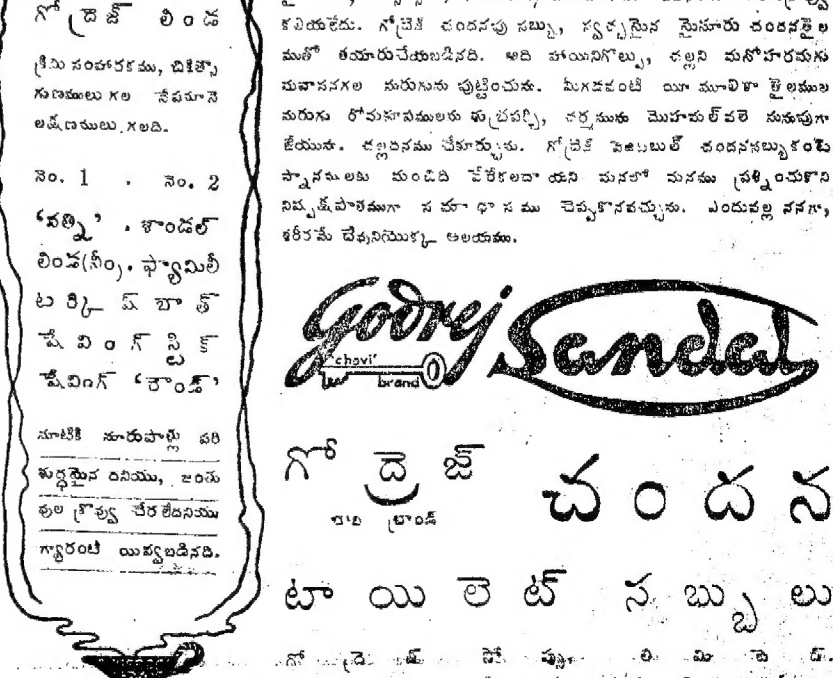 గోద్రెజ్ లిండ
క్రిమి సంహారకము, చికిత్సా
గుణములు గల సేపనానె
లక్షణములు గలది.
నెం. 1 . నెం. 2
'వత్ని' . శాండల్
లిండ(నీం), ఫ్యామిలీ
టర్కిష్ బాత్
షేవింగ్ స్టిక్
షేవింగ్ 'రౌండ్'
నూటికి నూరుపాళ్లు పరి
శుద్ధమైన దనియు, జంతు
వుల క్రొవ్వు చేరలేదనియు
గ్యారంటీ యివ్వబడినది.
కలియలేదు. గోద్రెజ్ చందనపు సబ్బు, స్వచ్ఛమైన మైసూరు చందనతైల
ముతో తయారుచేయబడినది. అది హాయినిగొల్పు, చల్లని మనోహరమగు
సువాసనగల నురుగును పుట్టించును. మీగడవంటి యీ మూలికా తైలముల
నురుగు రోమకూపములను శుభ్రపర్చి, చర్మమును మొహమల్‌వలె నునుపుగా
జేయును. చల్లదనము చేకూర్చును. గోద్రెజ్ వెజిటబుల్ చందనసబ్బుకంటె
స్నానములకు మంచిది వేరేకలదా యని మనలో మనము ప్రశ్నించుకొని
నిష్పక్షపాతముగా సమాధానము చెప్పుకొనవచ్చును. ఎందువల్ల ననగా,
శరీరమే దేవునియొక్క ఆలయము.
Godrej Sandal
'chavi' brand
గోద్రెజ్ చందన
చావి బ్రాండ్
టాయిలెట్ సబ్బులు
గోద్రెజ్ సోప్సు లిమిటెడ్.